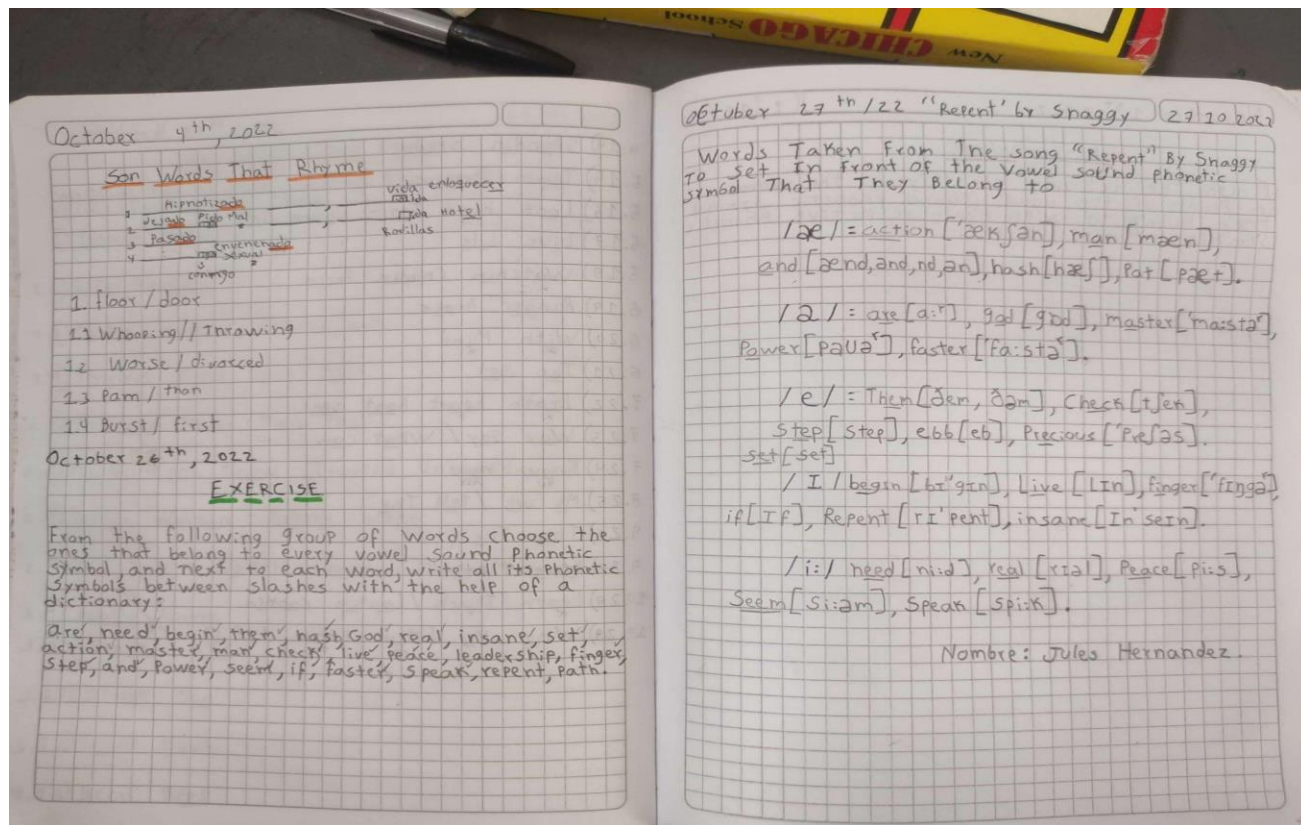 New CHICAGO School
October 4th, 2022
Son Words That Rhyme
Hipnotizado
vida enloquecer
1
2 Dejado Pido Mal
Hotel
3 Pasado
Rodillas
4
envenenado
conmigo
1. floor / door
1.1 Whooping // Throwing
1.2 Worse / divorced
1.3 Pam / than
1.4 Burst / first
October 26th, 2022
EXERCISE
From the following group of words choose the
ones that belong to every vowel sound Phonetic
symbol, and next to each word, write all its phonetic
symbols between slashes with the help of a
dictionary:
are, need, begin, them, hash, God, real, insane, set,
action, master, man, check, live, peace, leadership, finger,
step, and, Power, seem, if, faster, speak, repent, path.
October 27th/22 "Repent' by Snaggy 27 10 2022
Words Taken From The song "Repent" By Snaggy
To set In Front of the Vowel sound phonetic
symbol That They Belong to
/æ/ = action ['ækʃən], man [mæn],
and [ænd, ənd, nd, ən], hash [hæʃ], Pat [pæt].
/a/ = are [a:ʳ], god [gɒd], master ['ma:stəʳ],
Power [paʊəʳ], faster ['fa:stəʳ].
/e/ = Them [ðem, ðəm], Check [tʃek],
Step [step], ebb [eb], Precious ['preʃəs].
set [set]
/I/ begin [bI'gIn], Live [LIn], finger ['fIngəʳ],
if [If], Repent [rI'pent], insane [In'seIn].
/i:/ need [ni:d], real [rIəl], Peace [pi:s],
Seem [si:əm], Speak [spi:k].
Nombre: Jules Hernandez.